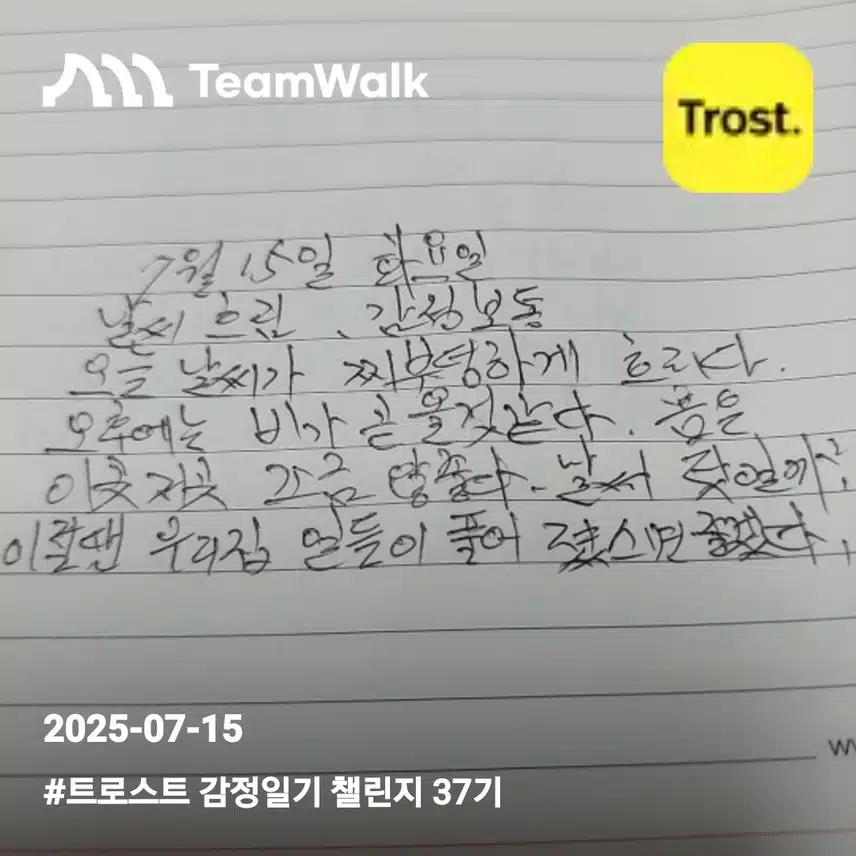 TeamWalk
Trost.
7월 15일 화요일
날씨 흐림. 감정보통
오늘 날씨가 찌부덩하게 흐리다.
오후에는 비가 곧 올것같다. 몸은
이곳저곳 조금 않좋다. 날씨 탓일까?
이럴땐 우리집 일들이 풀어 졌스면 좋겠다.
2025-07-15
#트로스트 감정일기 챌린지 37기